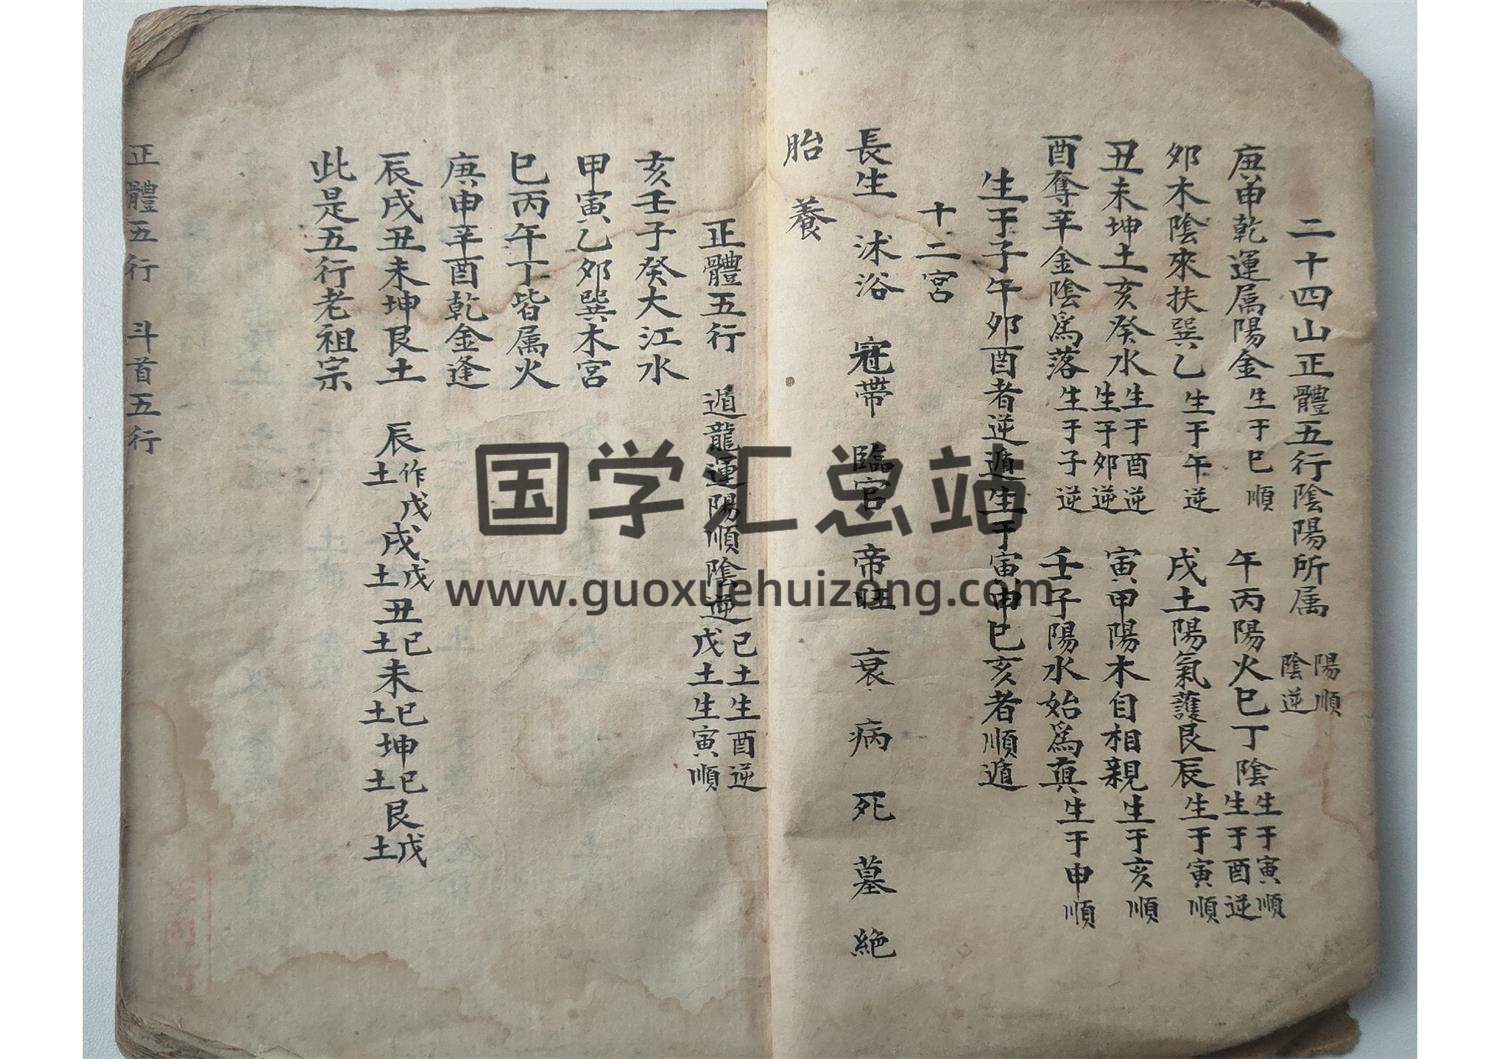 二十四山正體五行陰陽所属 陽順 陰逆
庚申乾運属陽金 生于巳順 午丙陽火巳丁陰 生于寅順 生于酉逆
夘木陰來扶巽乙 生于午逆 戌土陽氣護艮辰 生于寅順
丑未坤土亥癸水 生于酉逆 生于夘逆 寅甲陽木自相親 生于亥順
酉奪辛金陰爲落 生于子逆 壬子陽水始爲真 生于申順
生于子午夘酉者逆遁生于寅申巳亥者順遁
十二宮
長生 沭浴 冦帶 臨官 帝旺 衰 病 死 墓 絶
胎 養
正體五行 遁龍運陽順陰逆 己土生酉逆 戊土生寅順
亥壬子癸大江水
甲寅乙夘巽木宮
巳丙午丁皆属火
庚申辛酉乾金逢
辰戌丑未坤艮土 辰土作戊 戌土戊 丑土己 未土己 坤土己 艮土戊
此是五行老祖宗
正體五行 斗首五行
国学汇总站
www.guoxuehuizong.com